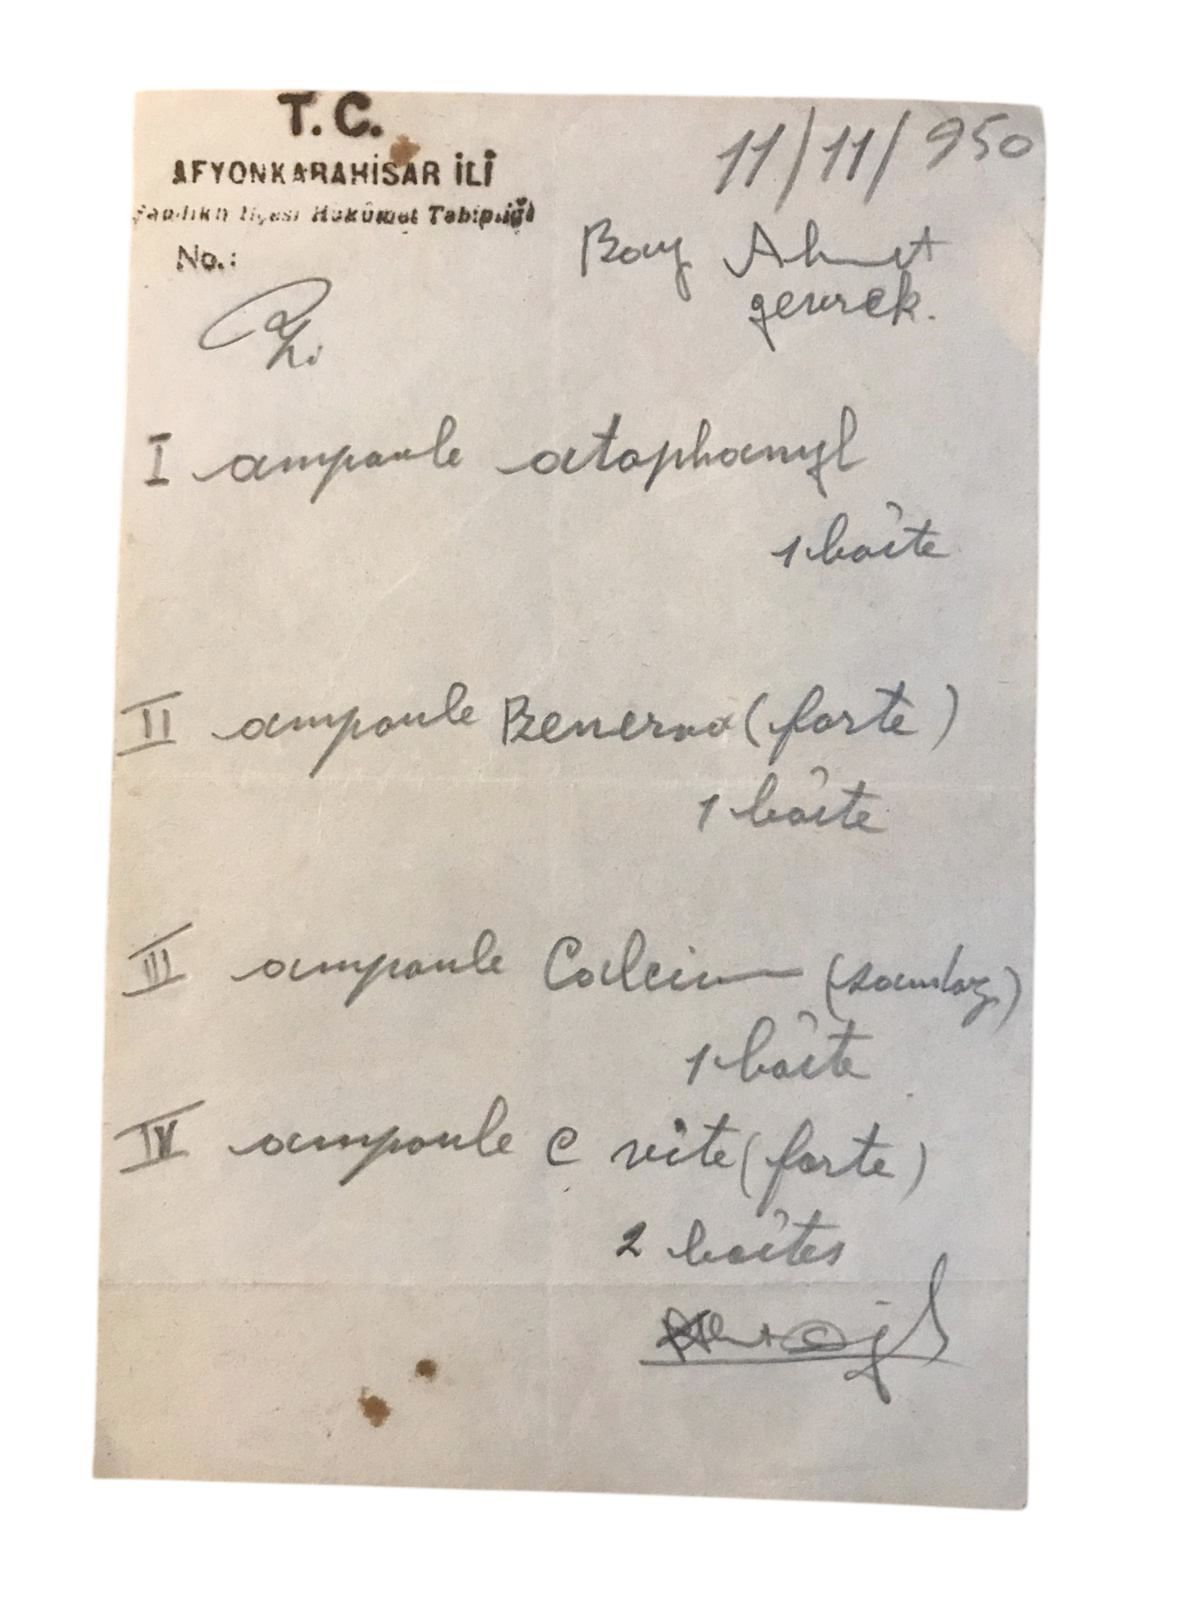 T. C.
AFYONKARAHİSAR İLİ
Sandıklı İlçesi Hükûmet Tabipliği
No.:
11/11/950
Bay Ahmet
gevrek.
I ampoule atophanyl
1 boîte
II ampoule Benerva (forte)
1 boîte
III ampoule Calcium (sandoz)
1 boîte
IV ampoule C vite (forte)
2 boîtes